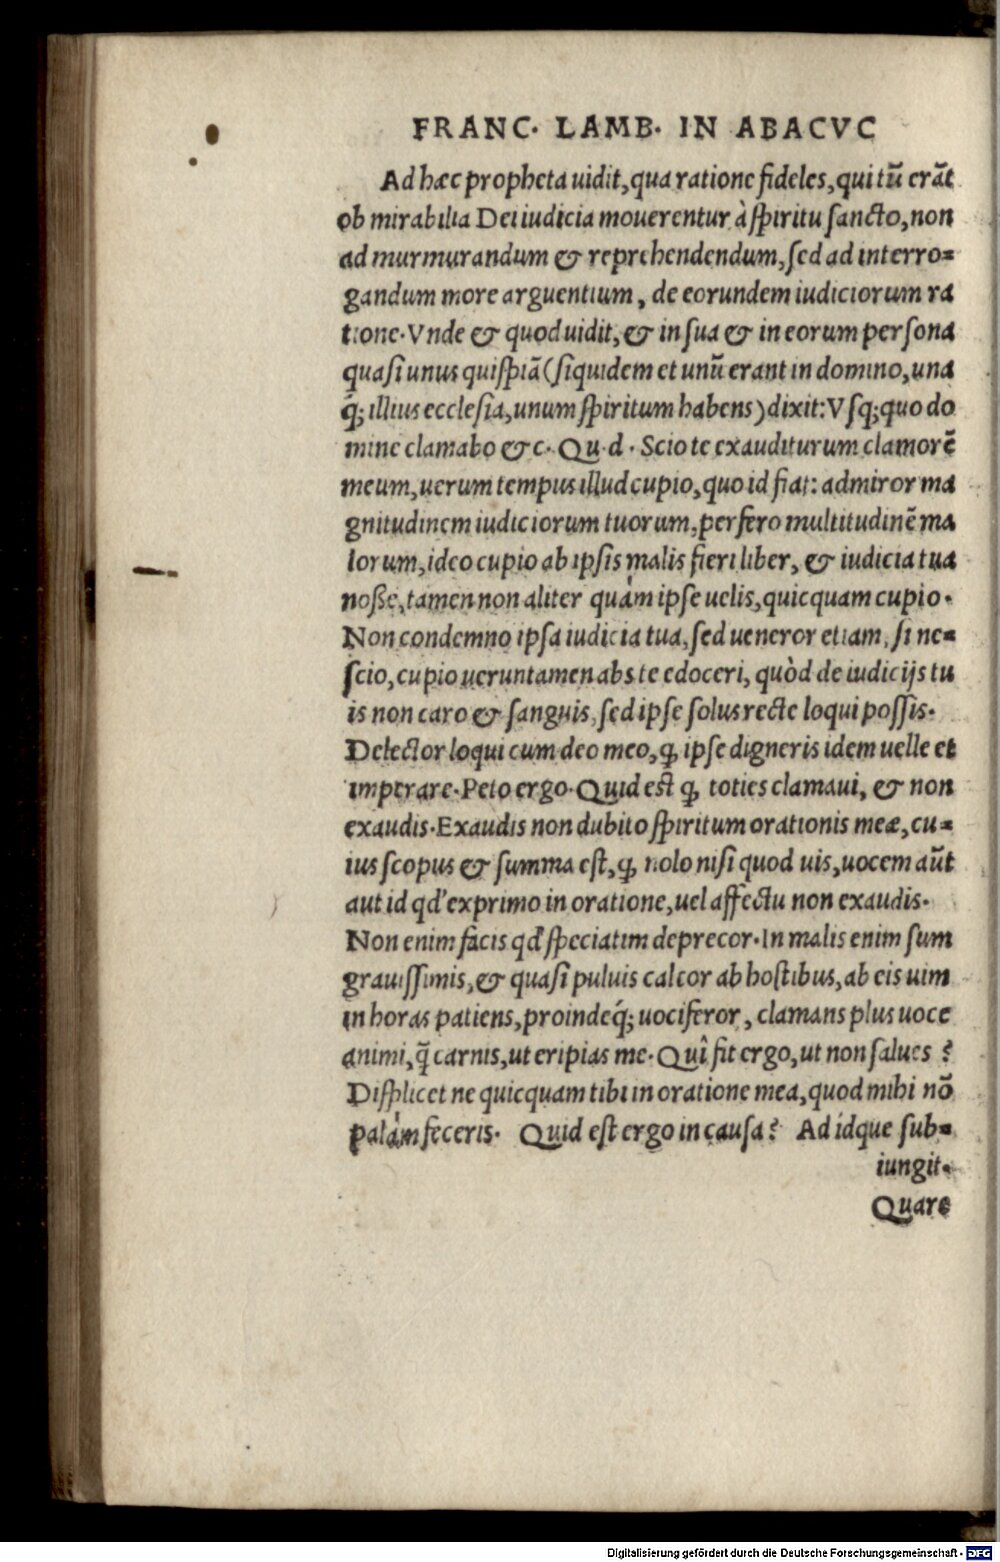 FRANC. LAMB. IN ABACVC
Ad hæc propheta uidit, qua ratione fideles, qui tũ erãt
ob mirabilia Dei iudicia mouerentur à spiritu sancto, non
ad murmurandum & reprehendendum, sed ad interro=
gandum more arguentium, de eorundem iudiciorum ra
tione. Vnde & quod uidit, & in sua & in eorum persona
quasi unus quispiã (siquidem et unũ erant in domino, una
q́; illius ecclesia, unum spiritum habens) dixit: Vsq; quo do
mine clamabo &c. Qu. d. Scio te exauditurum clamorẽ
meum, uerum tempus illud cupio, quo id fiat: admiror ma
gnitudinem iudiciorum tuorum, perfero multitudinẽ ma
lorum, ideo cupio ab ipsis malis fieri liber, & iudicia tua
nosse, tamen non aliter quàm ipse uelis, quicquam cupio.
Non condemno ipsa iudicia tua, sed ueneror etiam, si ne=
scio, cupio ueruntamen abs te edoceri, quòd de iudicijs tu
is non caro & sanguis, sed ipse solus recte loqui possis.
Delector loqui cum deo meo, ꝙ ipse digneris idem uelle et
imperare. Peto ergo. Quid est ꝙ toties clamaui, & non
exaudis. Exaudis non dubito spiritum orationis meæ, cu=
ius scopus & summa est, ꝙ nolo nisi quod uis, uocem aũt
aut id qd' exprimo in oratione, uel affectu non exaudis.
Non enim facis qd' speciatim deprecor. In malis enim sum
grauissimis, & quasi puluis calcor ab hostibus, ab eis uim
in horas patiens, proindeq́; uociferor, clamans plus uoce
animi, q̃ carnis, ut eripias me. Quî fit ergo, ut non salues?
Displicet ne quicquam tibi in oratione mea, quod mihi nõ
palàm feceris. Quid est ergo in causa? Ad idque sub=
iungit.
Quare
Digitalisierung gefördert durch die Deutsche Forschungsgemeinschaft - DFG